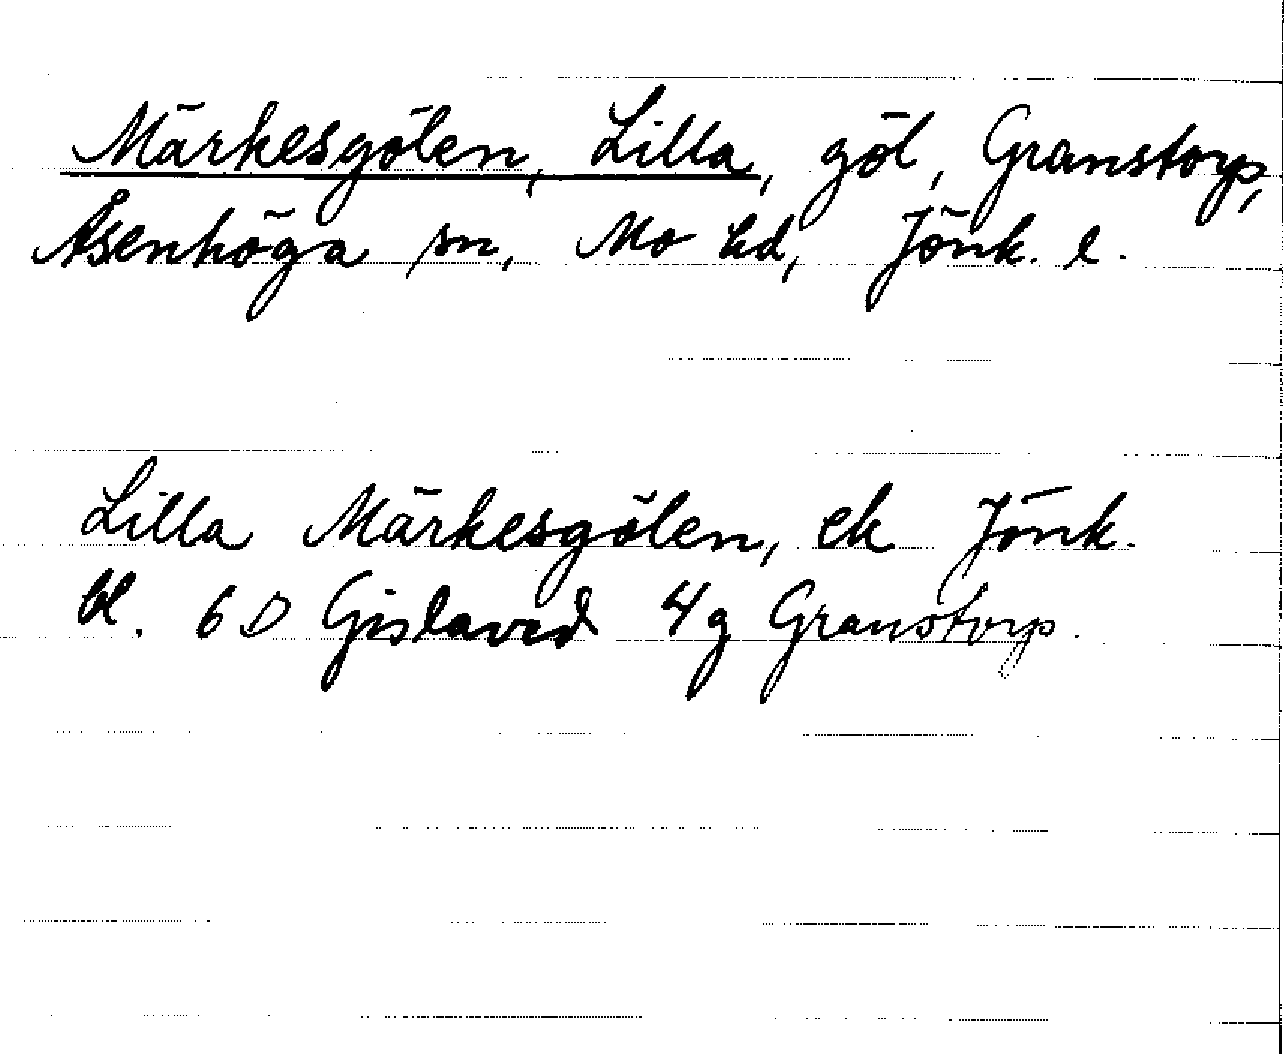 Märkesgölen, Lilla, göl, Granstorp,
Åsenhöga sn, Mo hd, Jönk. l.
Lilla Märkesgölen, ek Jönk.
bl. 6 D Gislaved 4g Granstorp.